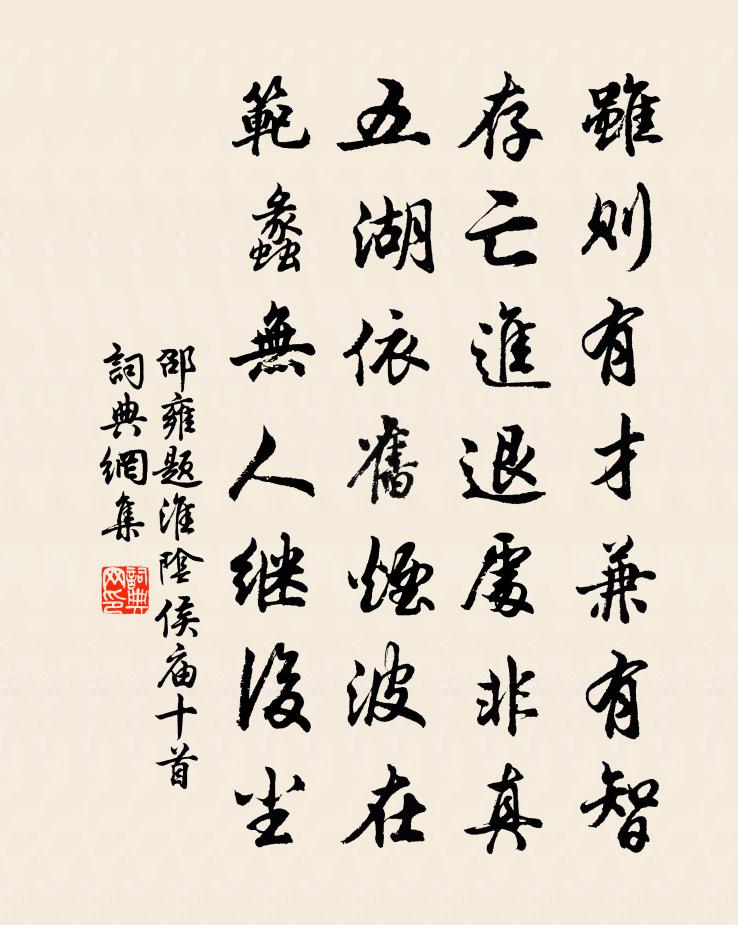 雖則有才兼有智
存亡進退處非真
五湖依舊煙波在
範蠡無人继後尘
邵雍题淮陰侯庙十首
詞典網集
詞典网印